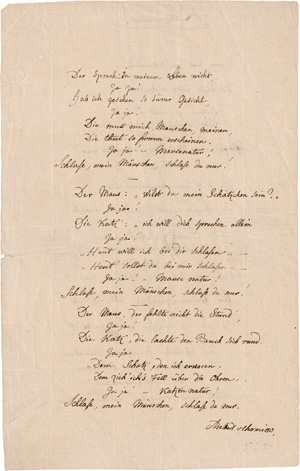 Der sprach: In meinem Leben nicht
Ja ja!
Hab ich gesehen so dumm Gesicht
Ja ja!
Die muss mich Mauschen, meinen,
Die thut so fromm erscheinen.
Ja ja – Mausenatur!
Schlafe, mein Mäuschen, schlafe du nur!
Der Maus: „Willst du mein Schätzchen sein?"
Ja ja!
Die Katz: „ich will dich sprechen allein
Ja ja!
„Heut will ich bei dir schlafen" –
„Heut sollst du bei mir schlafen –
Ja ja! – Mausenatur!
Schlafe, mein Mäuschen, schlafe du nur!
Der Maus, der fehlte nicht die Stund,
Ja ja!
Die Katz, die lachte den Bauch sich rund
Ja ja
Dem Schatz, den ich erkoren,
Dem zieh' ich's Fell über die Ohren,
Ja ja – Katzennatur!
Schlafe, mein Mäuschen, schlafe du nur.